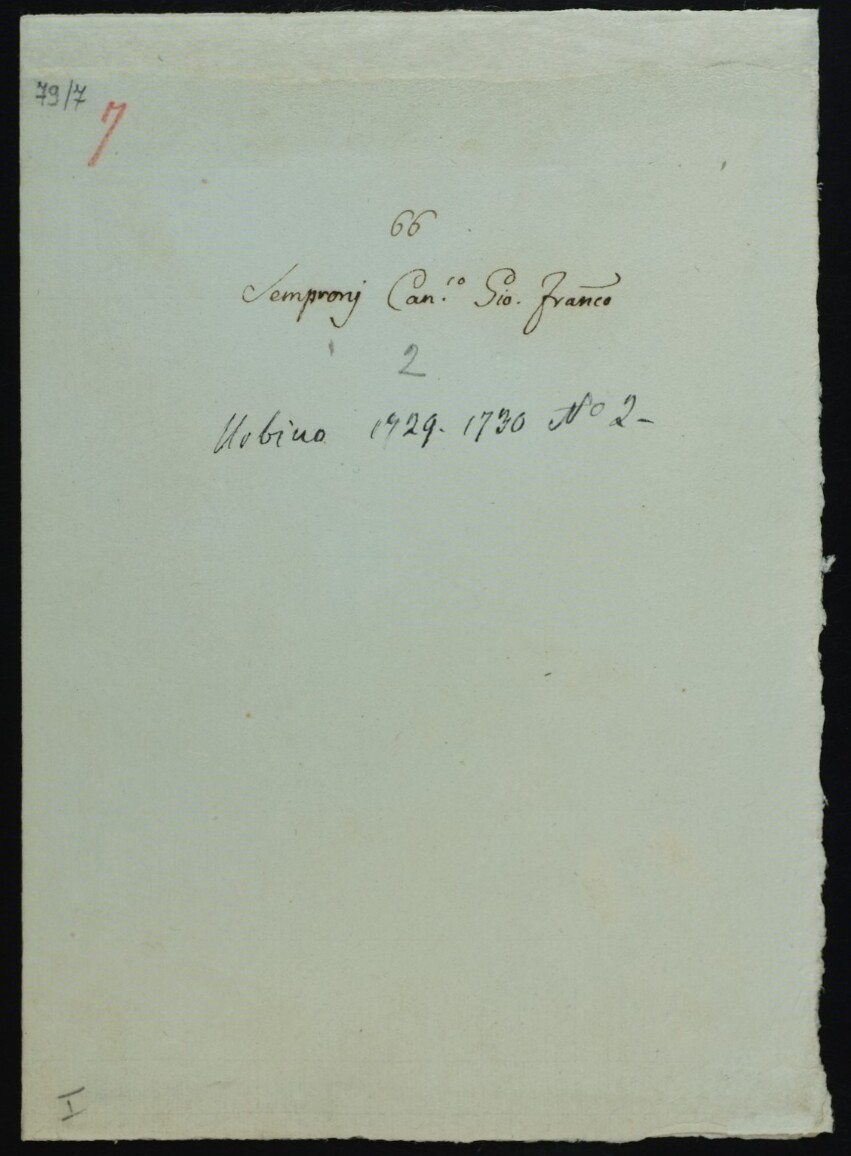 79/7
7
66
Sempronj Can.co Gio. Franco
2
Urbino 1729. 1730 No 2-
I